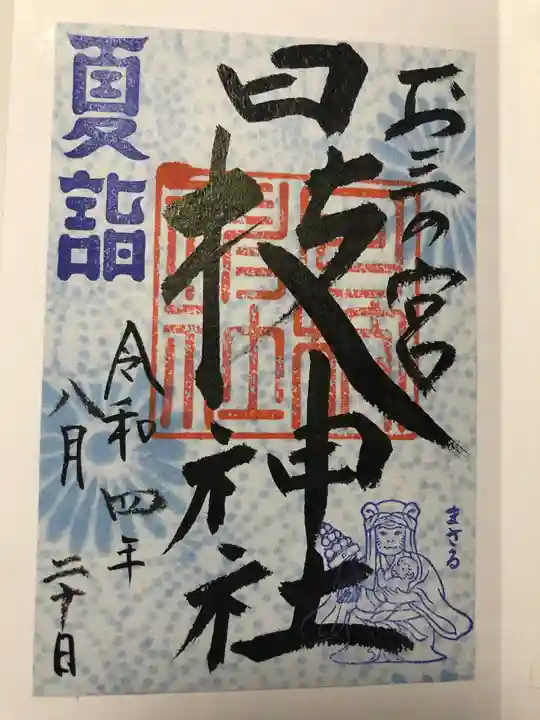 お三の宮
日枝神社
夏詣
令和四年
八月
二十日
まさる